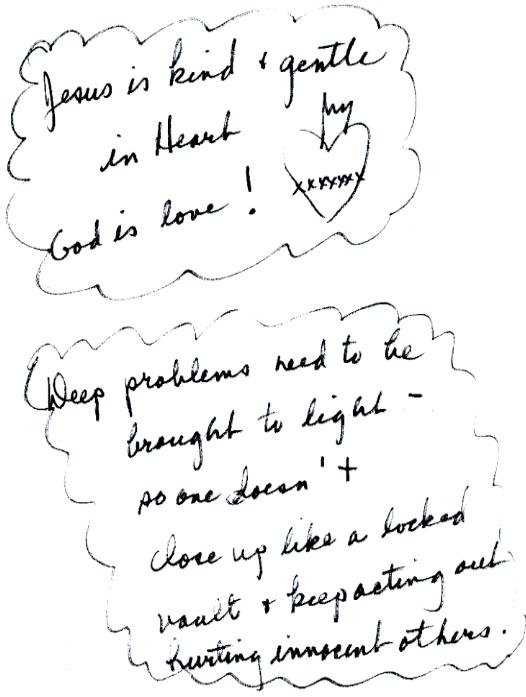 Jesus is kind + gentle
in Heart
my
xxxxxxx
God is love!
Deep problems need to be
brought to light -
so one doesn't
close up like a locked
vault + keep acting out
hurting innocent others.